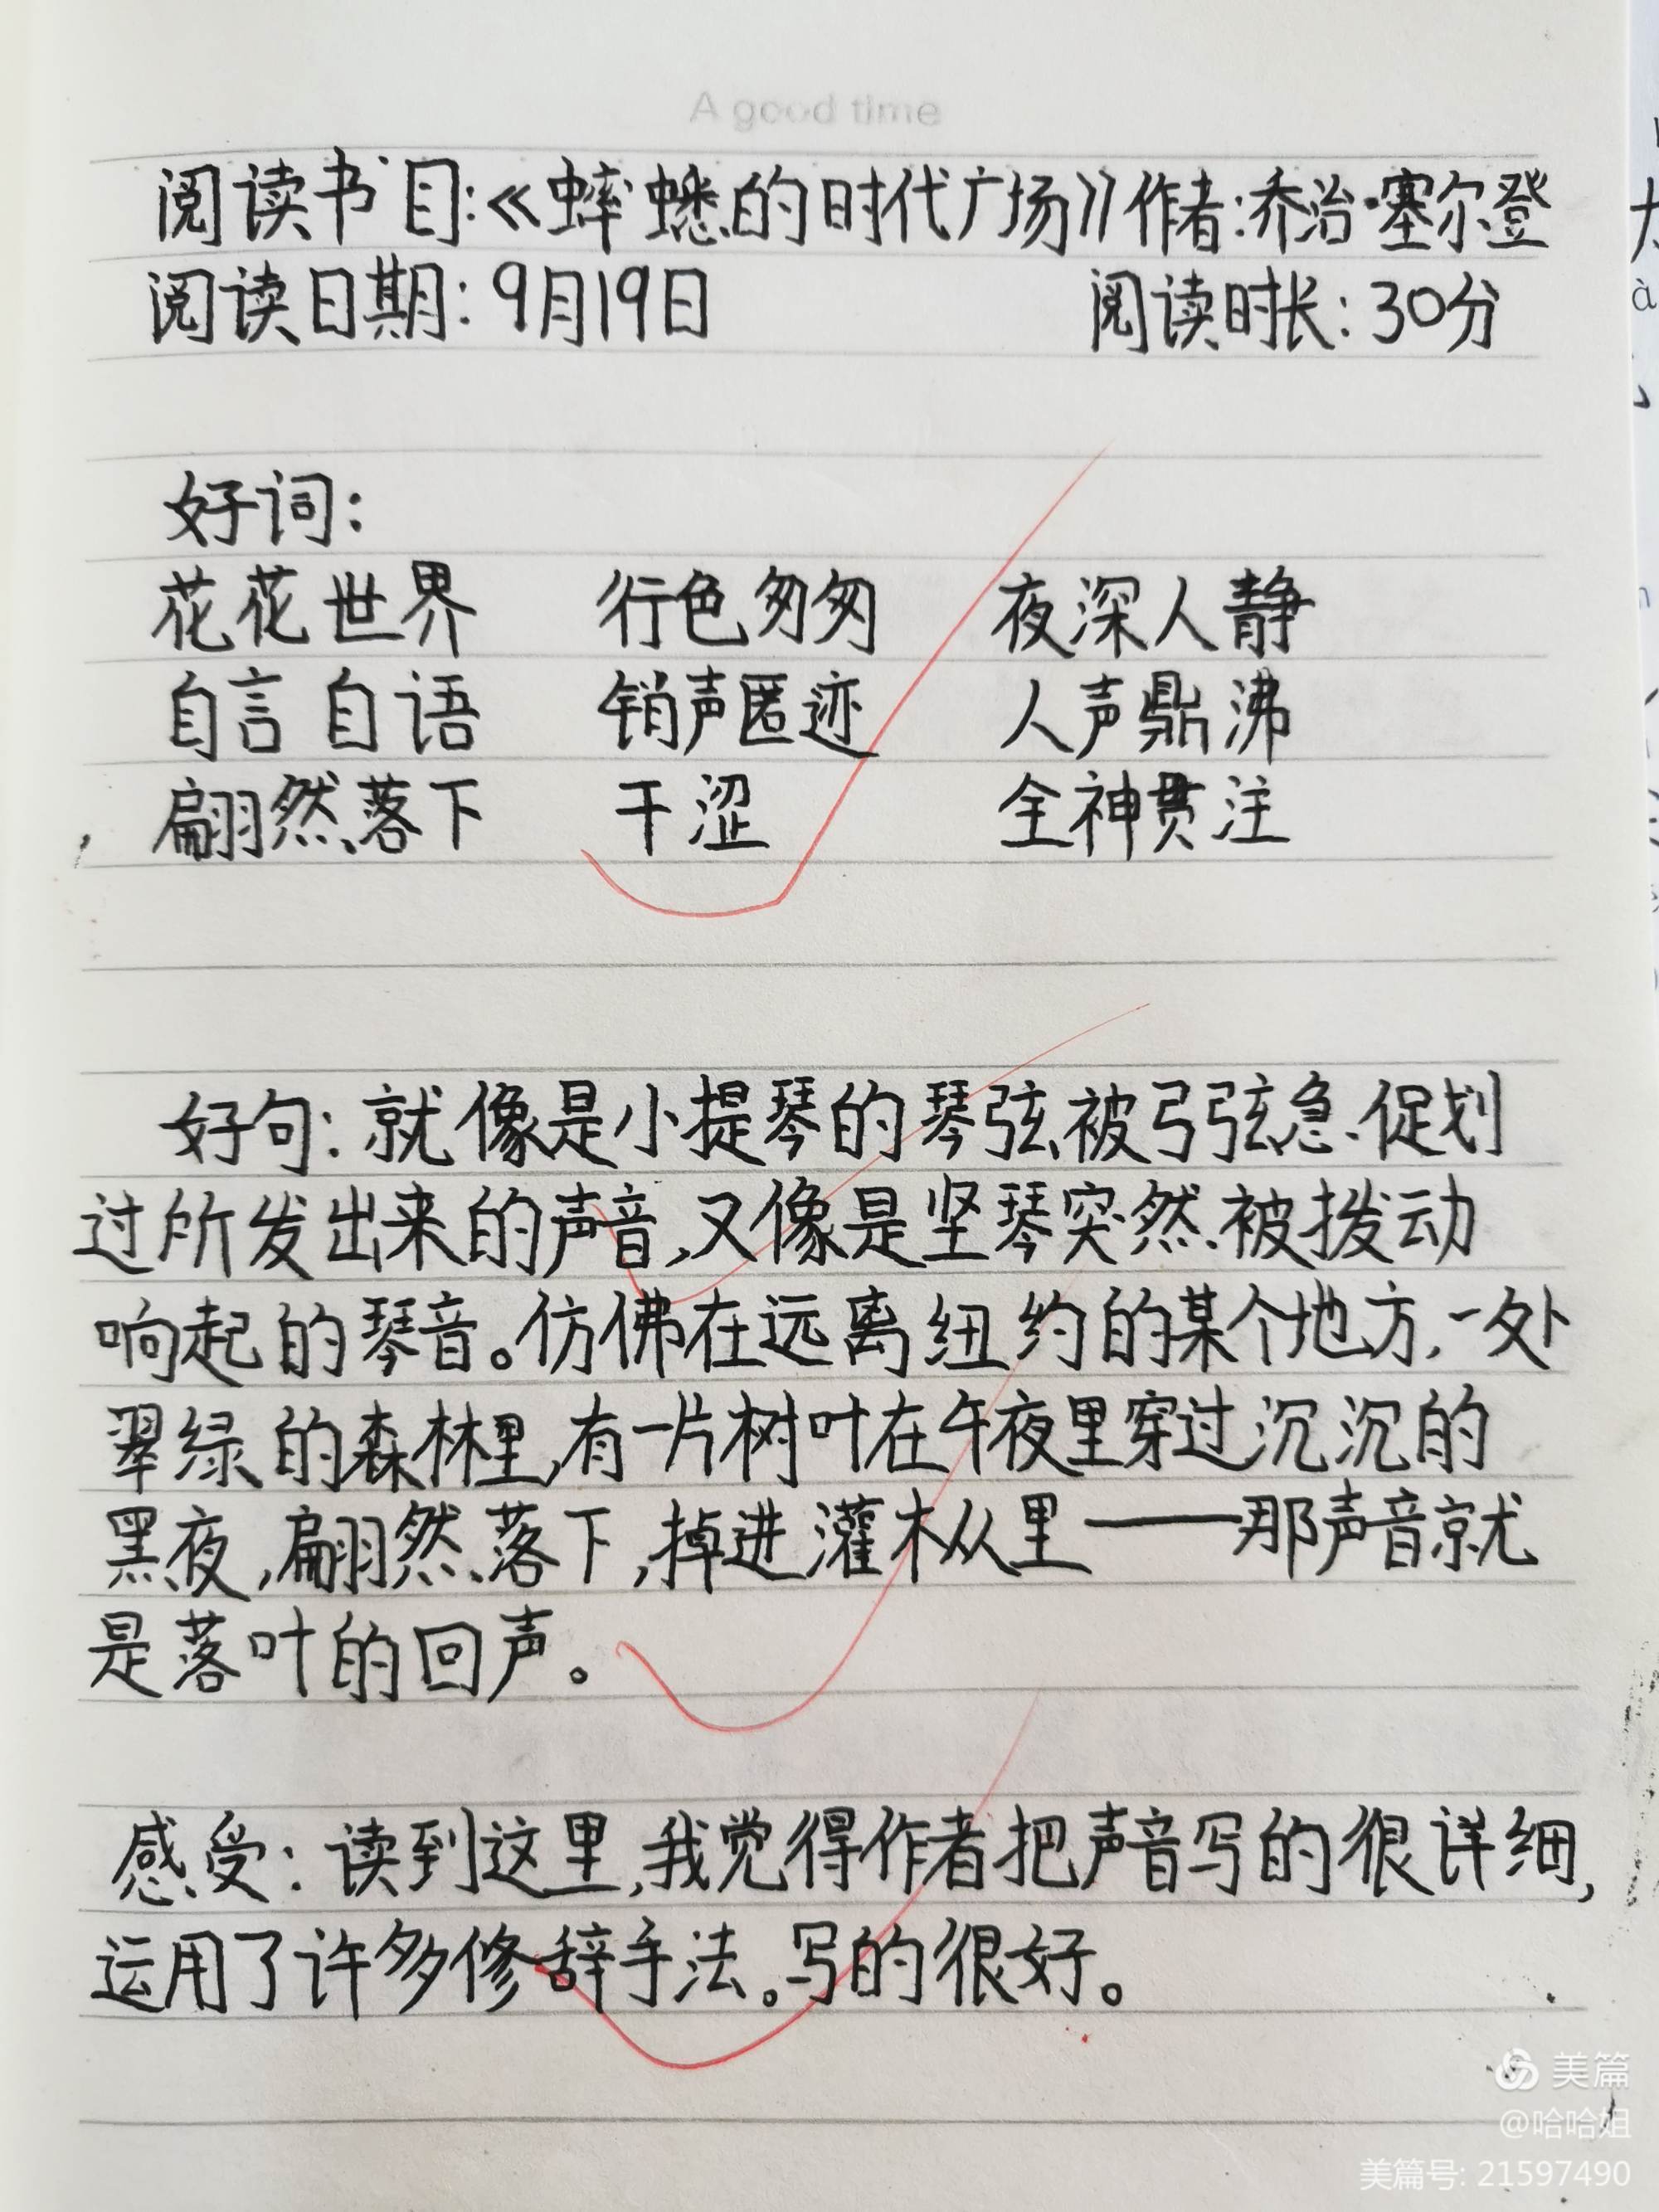 A good time
阅读书目:《蟋蟀的时代广场》作者:乔治·塞尔登
阅读日期:9月19日 阅读时长:30分
好词:
花花世界 行色匆匆 夜深人静
自言自语 销声匿迹 人声鼎沸
翩然落下 干涩 全神贯注
好句:就像是小提琴的琴弦被弓弦急促划
过所发出来的声音,又像是坚琴突然被拨动
响起的琴音。仿佛在远离纽约的某个地方,一处
翠绿的森林里,有一片树叶在午夜里穿过沉沉的
黑夜,翩然落下,掉进灌木从里——那声音就
是落叶的回声。
感受:读到这里,我觉得作者把声音写的很详细,
运用了许多修辞手法。写的很好。
美篇
@哈哈姐
美篇号: 21597490